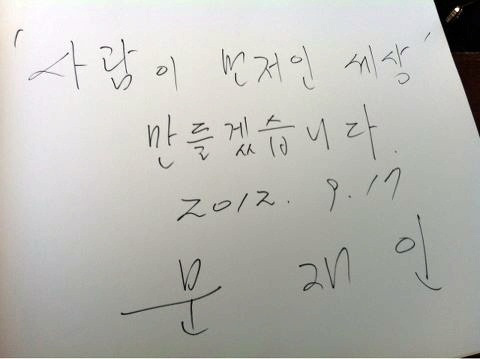 '사람이 먼저인 세상'
만들겠습니다.
2012. 9. 17
문 재 인